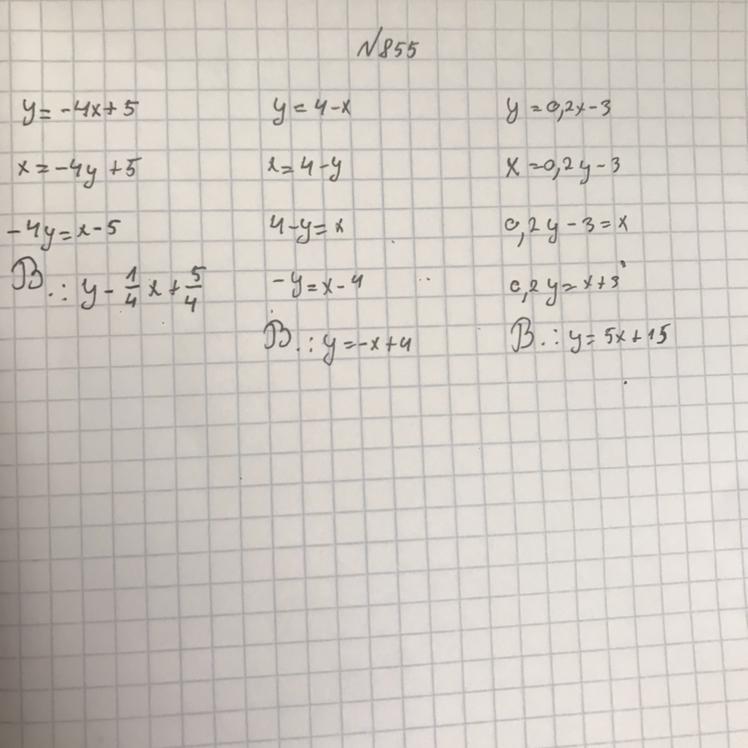 N855
y = -4x + 5
x = -4y + 5
-4y = x - 5
B.: y - 1/4 x + 5/4
y = 4 - x
x = 4 - y
4 - y = x
-y = x - 4
B.: y = -x + 4
y = 0,2x - 3
x = 0,2y - 3
0,2y - 3 = x
0,2y = x + 3
B.: y = 5x + 15